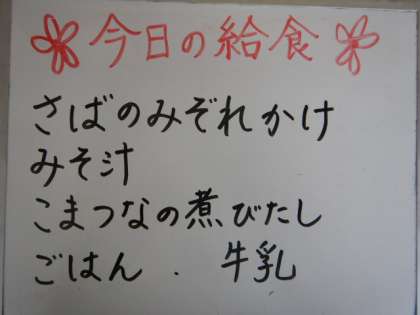 今日の給食
さばのみぞれかけ
みそ汁
こまつなの煮びたし
ごはん . 牛乳